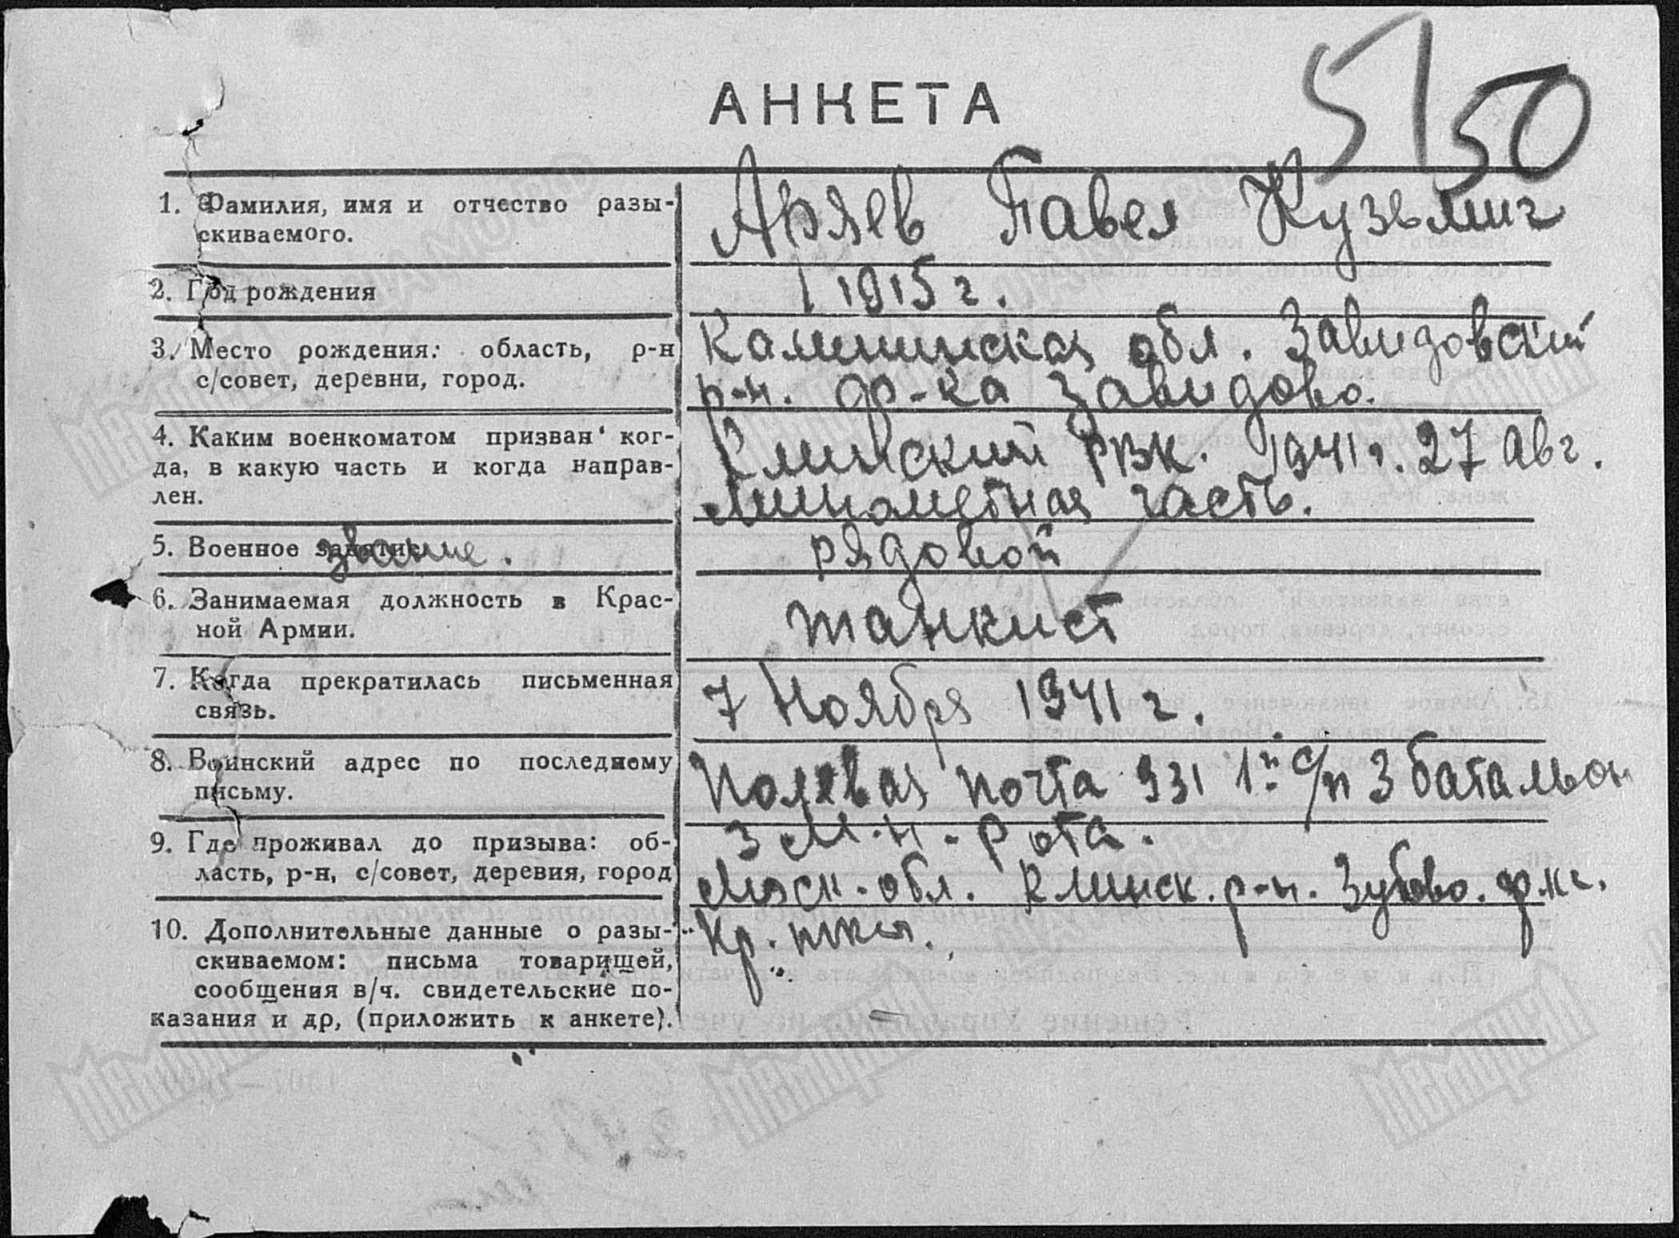 5150
АНКЕТА
1. Фамилия, имя и отчество разы-
скиваемого.
Аряев Павел Кузьмич
2. Год рождения
1915 г.
3. Место рождения: область, р-н
с/совет, деревни, город.
Калининская обл. Завидовский
р-н. ф-ка Завидово.
4. Каким военкоматом призван ког-
да, в какую часть и когда направ-
лен.
Клинский РВК. 1941 г. 27 Авг.
Минометная часть.
5. Военное звание.
рядовой
6. Занимаемая должность в Крас-
ной Армии.
танкист
7. Когда прекратилась письменная
связь.
7 Ноября 1941 г.
8. Воинский адрес по последнему
письму.
Полевая почта 931 1й с/п 3 батальон
3 М-н-рота.
9. Где проживал до призыва: об-
ласть, р-н, с/совет, деревня, город
Моск. обл. Клинск. р-н. Зубово. ф-ка.
10. Дополнительные данные о разы-
скиваемом: письма товарищей,
сообщения в/ч. свидетельские по-
казания и др, (приложить к анкете).
Кр.
Мемориал